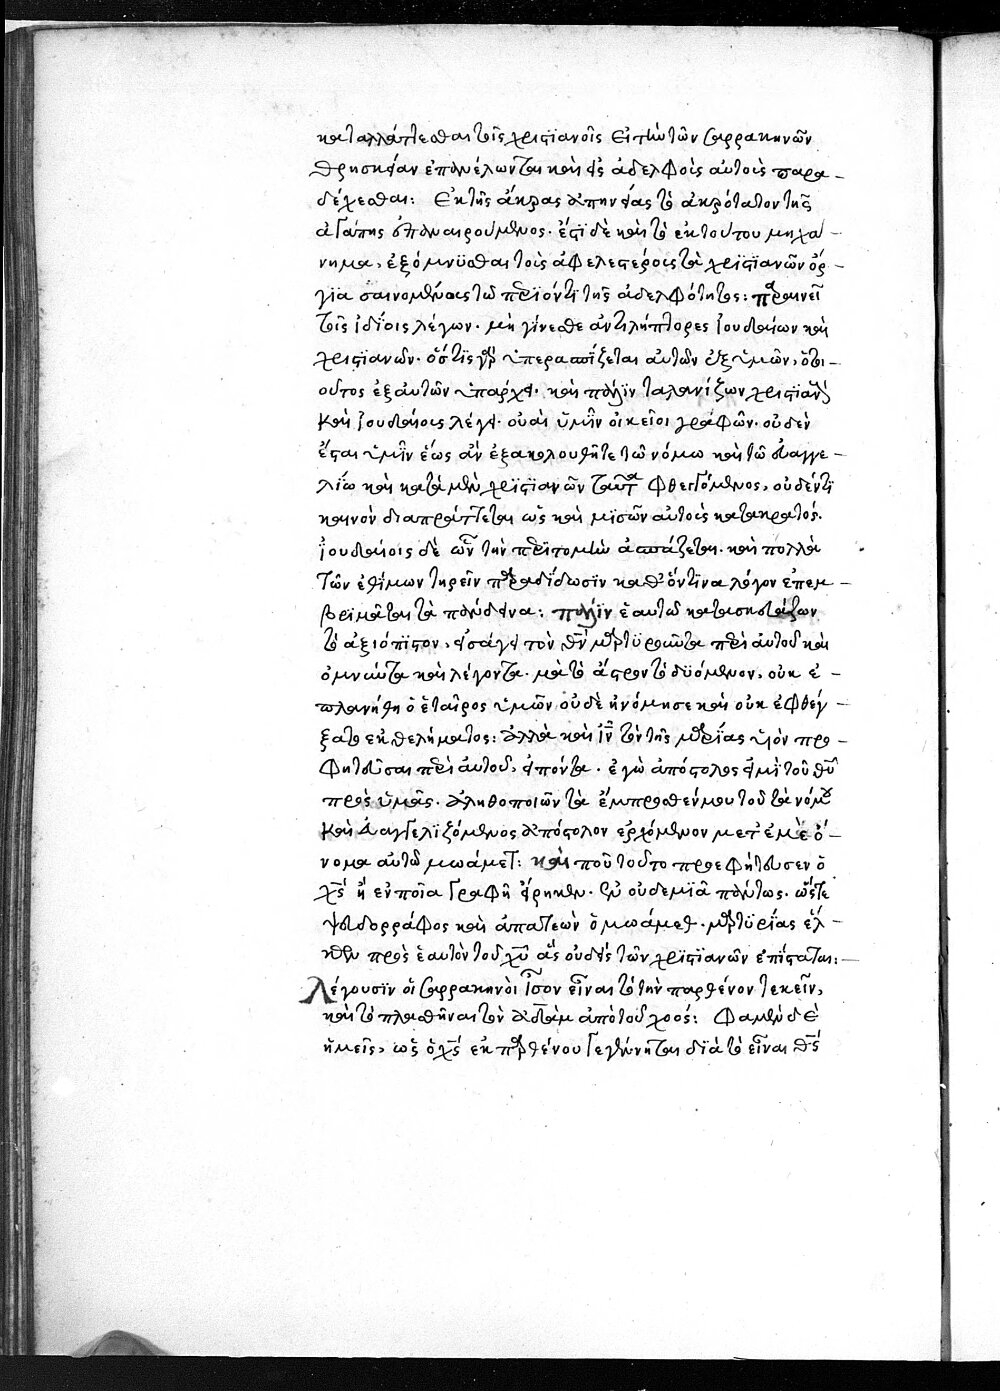 καταλλάττεσθαι τοῖς χριστιανοῖς εἰ τὴν τῶν σαρρακηνῶν
θρησκείαν ἐπανέλωνται καὶ εἰς ἀδελφοὺς αὐτοὺς παρα-
δέχεσθαι: Ἐκ τῆς ἄκρας ἀπηνείας τὸ ἀκρότατον τῆς
ἀγάπης ἐπαναιρούμενος. ἔστι δὲ καὶ τὸ ἐκ τούτου μηχά-
νημα, ἐξόμνυσθαι τοὺς ἀφελεστέρους τὰ χριστιανῶν ὄρ-
για σαινομένους τῷ προϊόντι τῆς ἀδελφότητος: παραινεῖ
τοῖς ἰδίοις λέγων. μὴ γίνεσθε ἀντιλήπτορες ἰουδαίων καὶ
χριστιανῶν. ὅστις γὰρ ὑπερασπίζεται αὐτῶν ἐξ ὑμῶν, ὅτι
οὗτος ἐξ αὐτῶν ὑπάρχει. καὶ πάλιν ταλανίζων χριστιανοὺς
καὶ ἰουδαίους λέγει. οὐαὶ ὑμῖν οἰκεῖοι γραφῶν. οὐδὲν
ἔσται ὑμῖν ἕως ἂν ἐξακολουθῆτε τῷ νόμῳ καὶ τῷ εὐαγγε-
λίῳ καὶ κατὰ μὲν χριστιανῶν ταῦτα φθεγγόμενος, οὐδέν τι
καινὸν διαπράττεται ὡς καὶ μισῶν αὐτοὺς κατακράτος.
ἰουδαίοις δὲ ὧν τὴν περιτομὴν ἀσπάζεται. καὶ πολλὰ
τῶν ἐθίμων τηρεῖν παραδίδωσιν καθ' ὅντινα λόγον ἐπεμ-
βριμᾶται τὰ πάνδεινα: πάλιν ἑαυτῷ κατασκευάζων
τὸ ἀξιόπιστον, εἰσάγει τὸν θν μαρτυροῦντα περὶ αὐτοῦ καὶ
ὀμνύντα καὶ λέγοντα. μὰ τὸ ἄστρον τὸ δυόμενον, οὐκ ἐ-
πλανήθη ὁ ἑταῖρος ὑμῶν οὐδὲ ἠνόμησε καὶ οὐκ ἐφθέγ-
ξατο ἐκ θελήματος: Ἀλλὰ καὶ ἰν τὸν τῆς μαρίας υἱὸν προ-
φητεῦσαι περὶ αὐτοῦ, εἰπόντα. ἐγὼ ἀπόστολος εἰμὶ τοῦ θυ
πρὸς ὑμᾶς. ἀληθοποιῶν τὰ ἔμπροσθέν μου τοῦ τὰ νόμου
καὶ εὐαγγελιζόμενος ἀπόστολον ἐρχόμενον μετ' ἐμὲ ὄ-
νομα αὐτῷ μωάμετ: καὶ ποῦ τοῦτο προεφήτευσεν ὁ
χς ἢ ἐν ποία γραφῆ εἴρηκεν. ἐν οὐδεμιᾷ πάντως. ὥστε
ψευδορράφος καὶ ἀπατεὼν ὁ μωάμεθ. μαρτυρίας ἕλ-
κων πρὸς ἑαυτὸν τοῦ χυ ἃς οὐδεὶς τῶν χριστιανῶν ἐπίσταται:—
Λέγουσιν οἱ σαρρακηνοὶ ἶσον εἶναι τὸ τὴν παρθένον τεκεῖν,
καὶ τὸ πλασθῆναι τὸν ἀδὰμ ἀπὸ τοῦ χοός: Φαμὲν δὲ
ἡμεῖς, ὡς ὁ χς ἐκ παρθένου γεγέννηται διὰ τὸ εἶναι θς